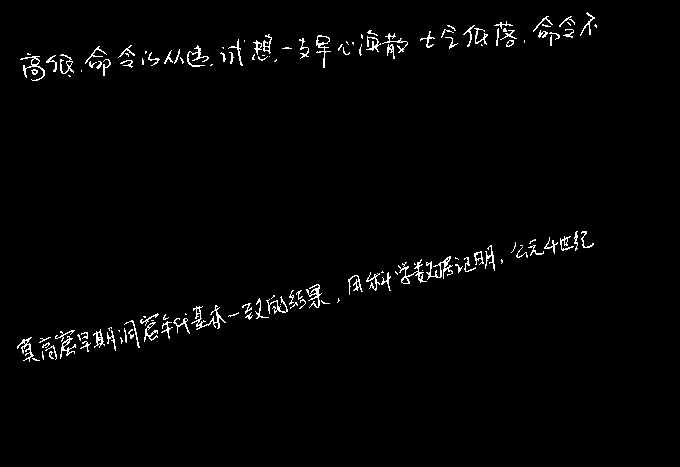 高低,命令的从违,试想,一支军心涣散士气低落,命令不
莫高窟早期洞窟年代基本一致的结果,用科学数据证明,公元4世纪